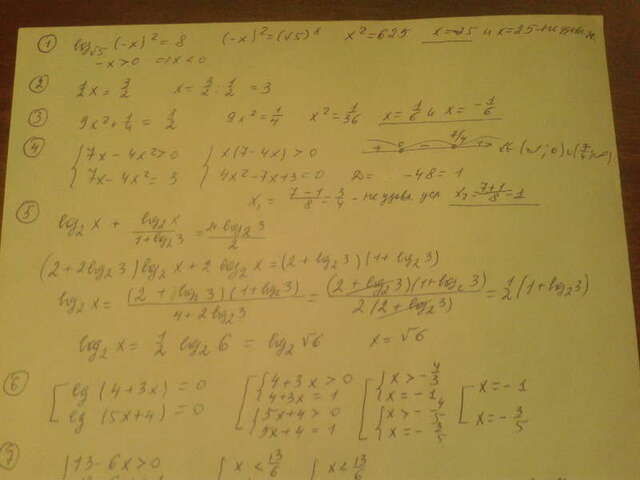 ① log_√5 (-x)² = 8 (-x)² = (√5)⁸ x² = 625 x = -25 и x = 25 -
-x > 0 => x < 0
② ½x = 3/2 x = 3/2 : 1/2 = 3
③ 9x² + 1/4 = 1/2 9x² = 1/4 x² = 1/36 x = 1/6 и x = -1/6
④ { 7x - 4x² > 0 { x(7 - 4x) > 0 + 0 - 7/4
{ 7x - 4x² = 3 { 4x² - 7x + 3 = 0 D = -48 = 1
x₁ = (7-1)/8 = 3/4 - не удовл. усл x₂ = (7+1)/8 = 1
⑤ log₂x + log₂x/(1+log₂3) = (2+log₂3)/2
(2 + 2log₂3) log₂x + 2 log₂x = (2 + log₂3)(1 + log₂3)
log₂x = (2 + log₂3)(1 + log₂3)/(4 + 2log₂3) = (2 + log₂3)(1 + log₂3)/(2(2 + log₂3)) = ½(1 + log₂3)
log₂x = ½ log₂6 = log₂√6 x = √6
⑥ [ lg (4+3x) = 0 [ { 4+3x > 0 [ { x > -4/3 [ x = -1
[ lg (5x+4) = 0 { 4+3x = 1 { x = -1 [ x = -3/5
{ 5x+4 > 0 { x > -4/5
{ 5x+4 = 1 { x = -3/5
{ 13 - 6x > 0 { x < 13/6 { x < 13/6